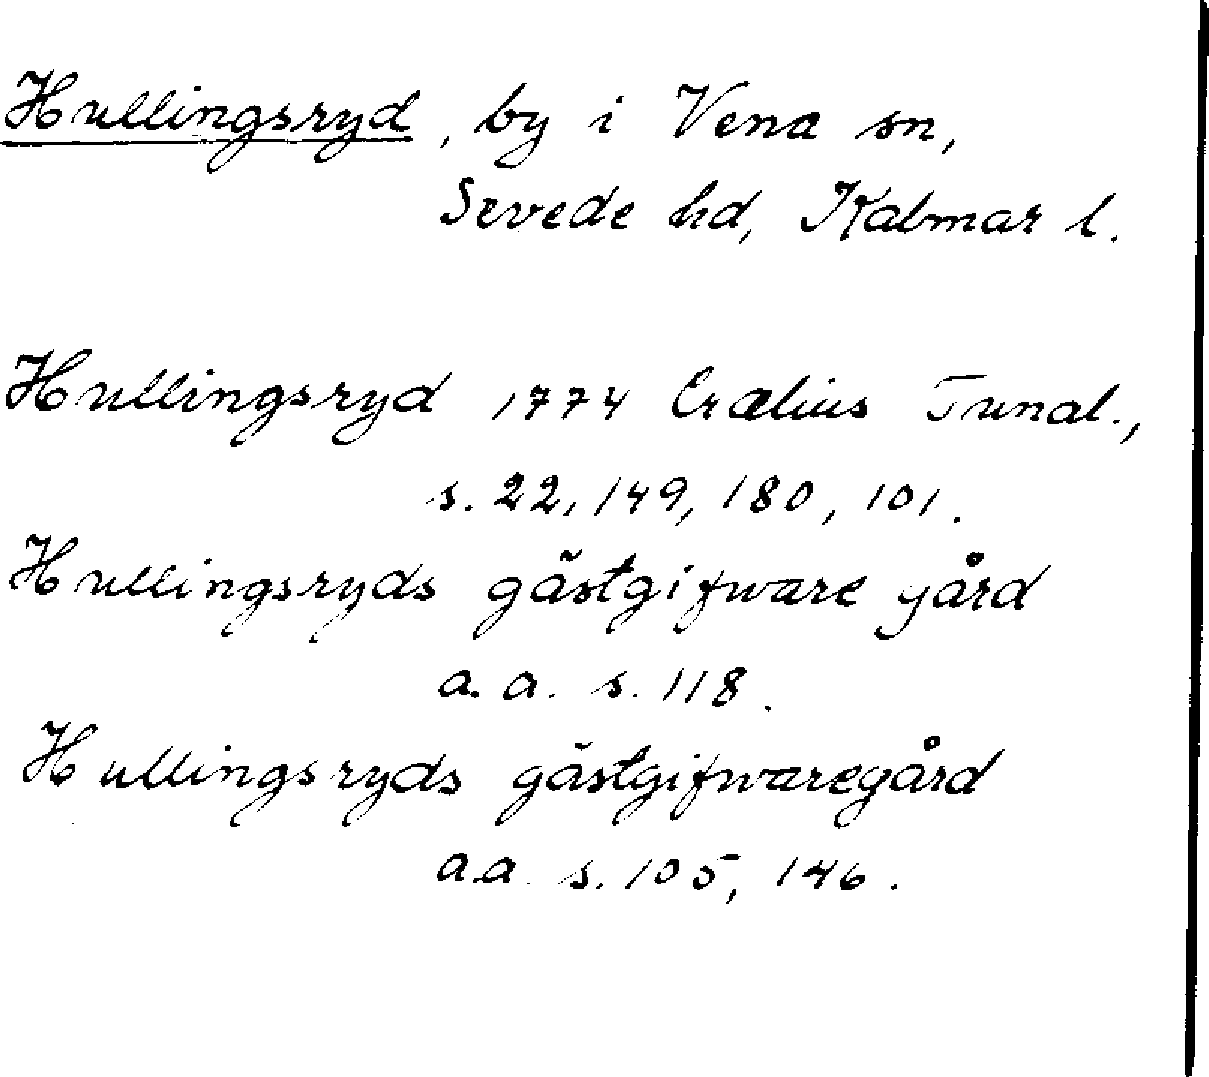 Hullingsryd, by i Vena sn,
Sevede hd, Kalmar l.
Hullingsryd 1774 Crælius Tunal.,
s. 22, 149, 180, 101.
Hullingsryds gästgifware gård
a. a. s. 118.
Hullingsryds gästgifwaregård
a.a. s. 105, 146.